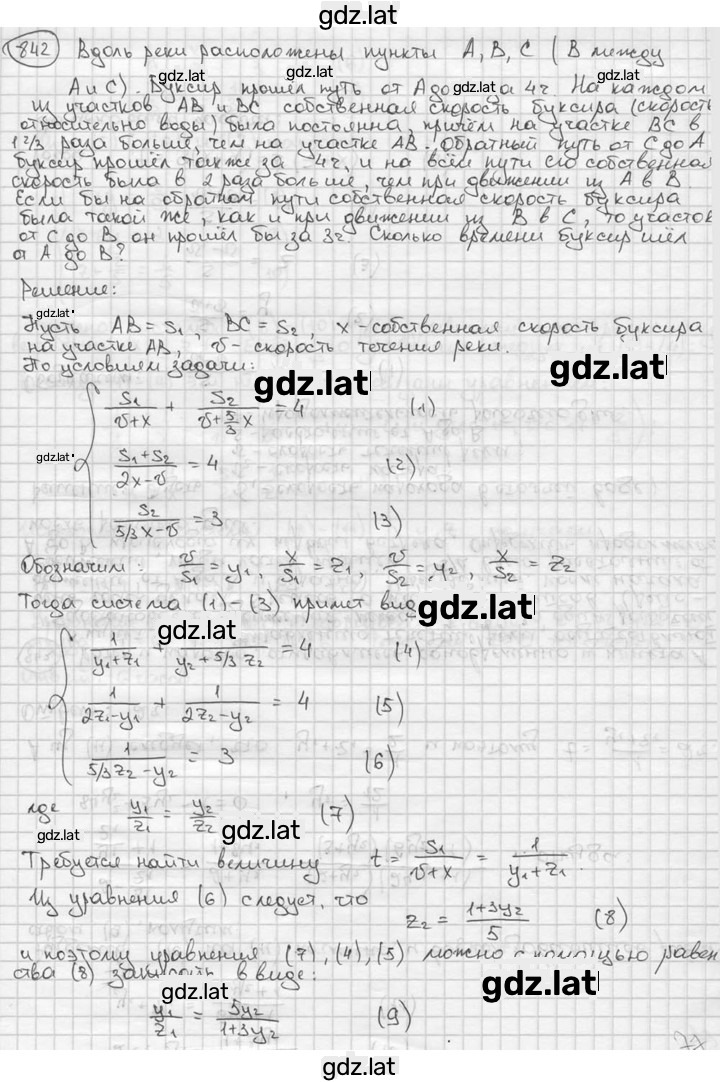 gdz.lat
842 Вдоль реки расположены пункты А, В, С (В между
gdz.lat gdz.lat
А и С). Буксир прошёл путь от А до за 4ч. На каждом
из участков АВ и ВС собственная скорость буксира (скорость
относительно воды) была постоянна, причём на участке ВС в
1 2/3 раза больше, чем на участке АВ. Обратный путь от С до А
буксир прошёл также за 4ч, и на всём пути его собственная
скорость была в 2 раза больше, чем при движении из А в В.
Если бы на обратном пути собственная скорость буксира
была такой же, как и при движении из В в С, то участок
от С до В он прошёл бы за 3ч. Сколько времени буксир шёл
от А до В?
Решение:
gdz.lat
Пусть АВ = S₁, ВС = S₂, x - собственная скорость буксира
на участке АВ, v - скорость течения реки.
По условиям задачи:
gdz.lat
gdz.lat
S₁/(v+x) + S₂/(v+5/3 x) = 4 (1)
gdz.lat
(S₁+S₂)/(2x-v) = 4 (2)
S₂/(5/3 x-v) = 3 (3)
Обозначим: v/S₁ = y₁, x/S₁ = z₁, v/S₂ = y₂, x/S₂ = z₂
Тогда система (1)-(3) примет вид
gdz.lat
gdz.lat
1/(y₁+z₁) + /(y₂+5/3 z₂) = 4 (4)
1/(2z₁-y₁) + 1/(2z₂-y₂) = 4 (5)
1/(5/3 z₂-y₂) = 3 (6)
где y₁/z₁ = y₂/z₂ (7)
gdz.lat gdz.lat
Требуется найти величину t = S₁/(v+x) = 1/(y₁+z₁).
Из уравнения (6) следует, что
z₂ = (1+3y₂)/5 (8)
и поэтому уравнения (7), (4), (5) можно с помощью равен
ства (8) записать в виде:
gdz.lat gdz.lat
y₁/z₁ = 5y₂/(1+3y₂) (9)
gdz.lat
gdz.lat